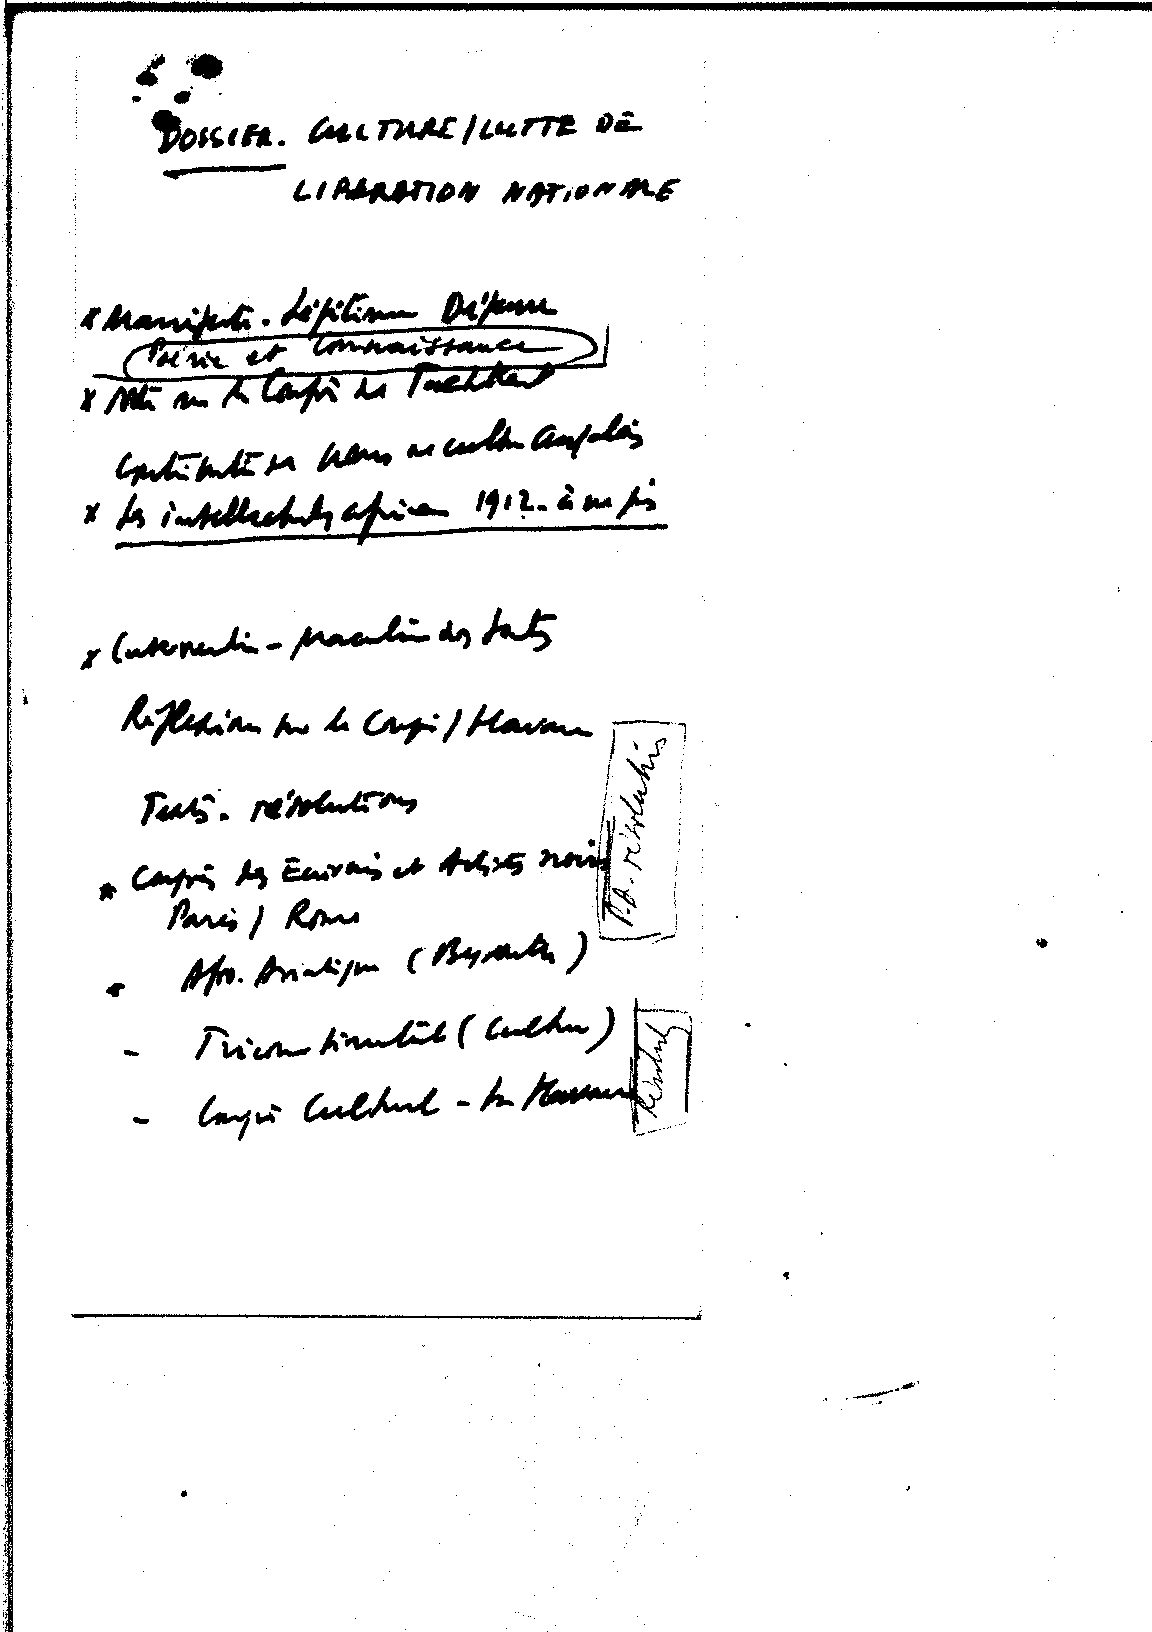 DOSSIER. CULTURE/LUTTE DE
LIBÉRATION NATIONALE
x Manifeste. Légitime Défense
Poésie et Connaissance
x Note sur le Congrès de Tachkent
culture Angolais
x Les intellectuels africains 1912. à nos jours
x Intervention - Mario des
Réflexions sur le Congrès / Havane
Textes. résolutions
* Congrès des Ecrivains et Artistes noirs
Paris / Rome
Afro. Asiatique (Beyrouth)
- Tricontinentale (Culture)
- Congrès Culturel - La Havane
résolutions